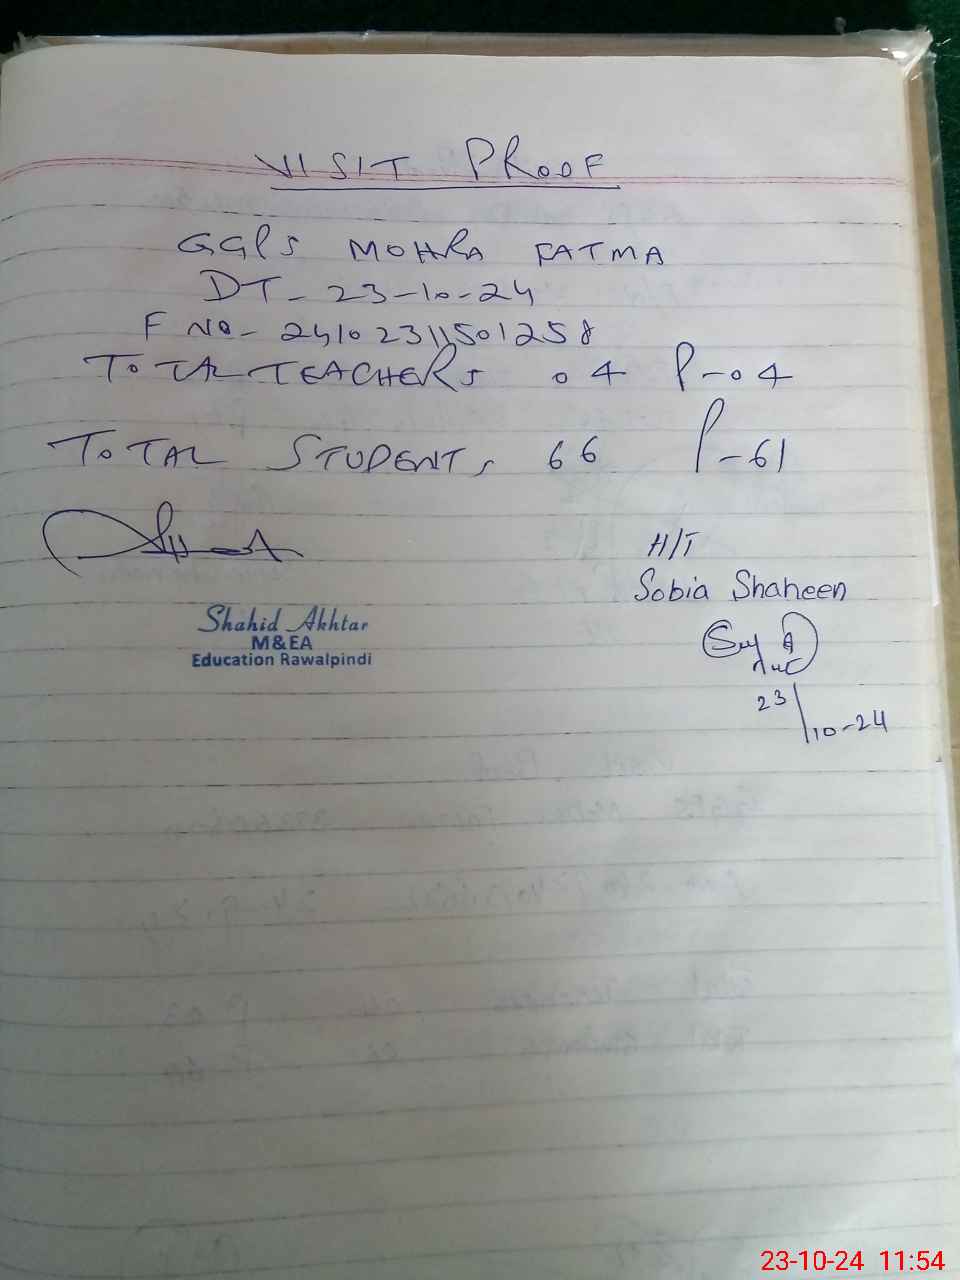 VISIT PROOF
GGPS MOHRA FATMA
DT- 23-10-24
F NO- 24102311501258
TOTAL TEACHERS 04 P-04
TOTAL STUDENTS 66 P-61
H/T
Sobia Shaheen
Shahid Akhtar
M&EA
Education Rawalpindi
23/10-24
23-10-24 11:54